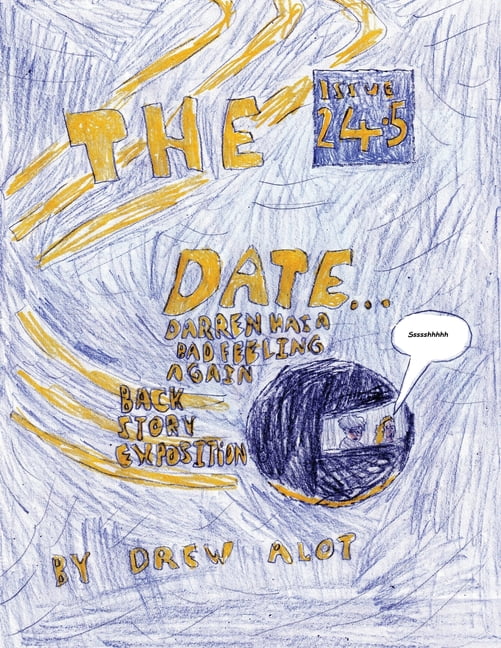 ISSUE
24.5
THE
DATE...
DARREN HAS A
BAD FEELING
AGAIN
Ssssshhhhh
BACK
STORY
EXPOSITION
BY DREW ALOT